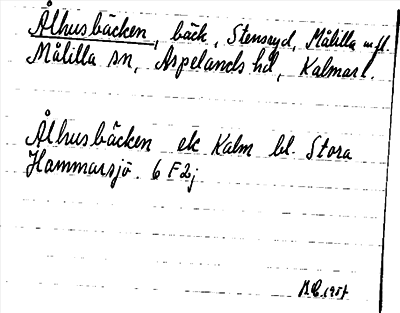 Ålhusbäcken, bäck, Stensryd, Målilla m.fl.
Målilla sn, Aspelands hd, Kalmar l.
Ålhusbäcken ek Kalm bl. Stora
Hammarsjö. 6 F2j
1957